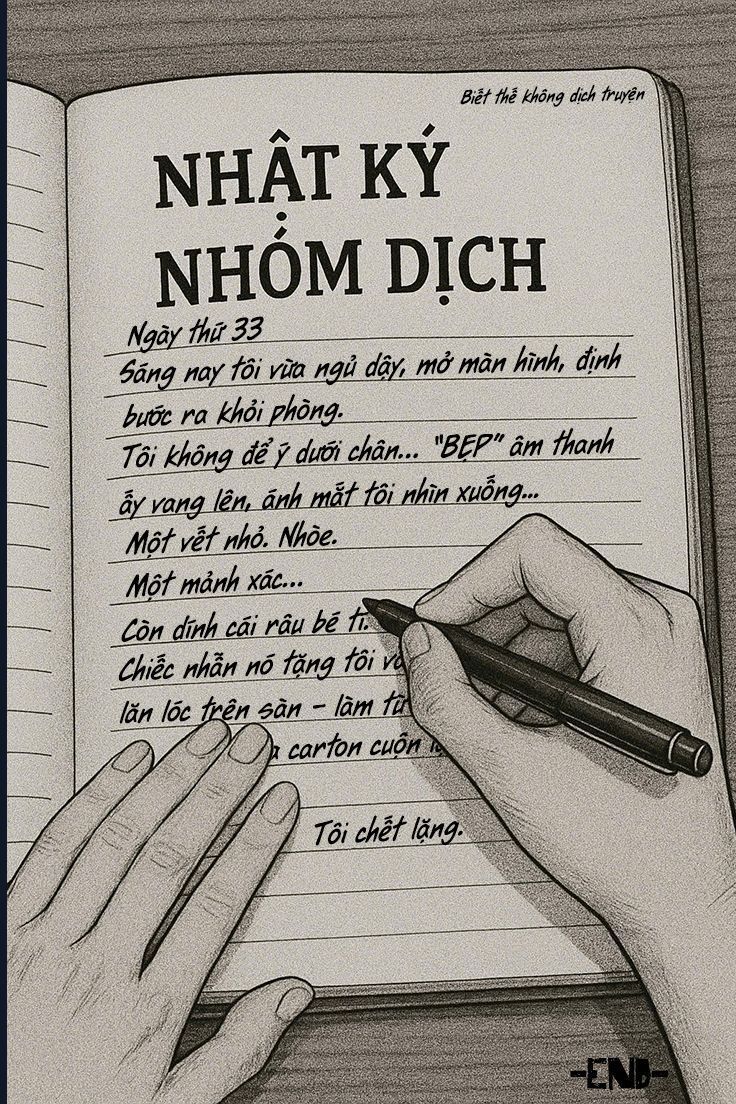 Biết thế không dịch truyện
NHẬT KÝ
NHÓM DỊCH
Ngày thứ 33
Sáng nay tôi vừa ngủ dậy, mở màn hình, định
bước ra khỏi phòng.
Tôi không để ý dưới chân... "BẸP" âm thanh
ấy vang lên, ánh mắt tôi nhìn xuống...
Một vết nhỏ. Nhòe.
Một mảnh xác...
Còn dính cái râu bé tí.
Chiếc nhẫn nó tặng tôi
lăn lóc trên sàn – làm từ
carton cuộn
Tôi chết lặng.
-END-